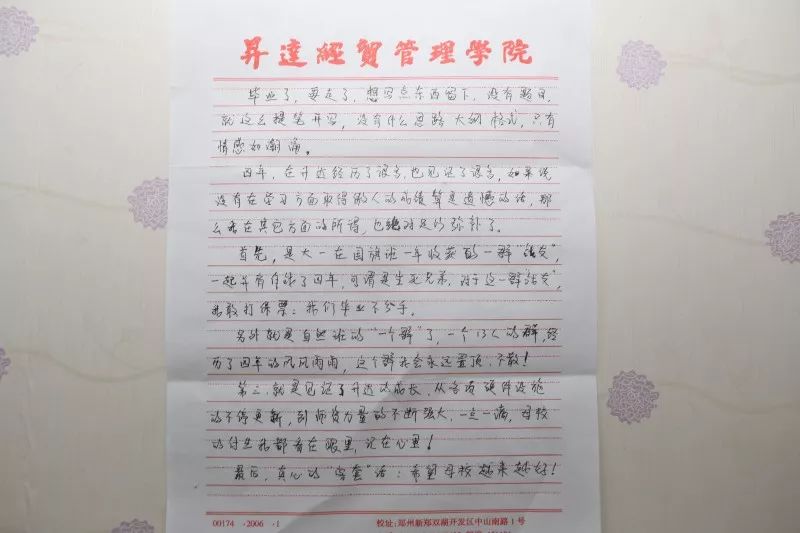 昇達經貿管理學院
毕业了，要走了，想写点东西留下，没有题目，
就这么提笔开写，没有什么思路 大纲 格式，只有
情感如潮涌。
四年，在升达经历了很多，也见证了很多，如果说
没有在学习方面取得傲人的成绩算是遗憾的话，那
么我在其它方面的所得，也绝对足以弥补了。
首先，是大一在国旗班一年收获的一群“战友”，
一起并肩作战了四年，可谓是生死兄弟，对于这一群“战友”，
我敢打保票：我们毕业不分手。
另外就是自然班的“一个群”了，一个13人的群，经
历了四年的风风雨雨，这个群我会永远置顶，不散！
第三，就是见证了升达的成长，从各项硬件设施
的不停更新，到师资力量的不断强大，一点一滴，母校
的付出我都看在眼里，记在心里！
最后，真心的“客套”话：希望母校越来越好！
00174 ·2006 ·1
校址:郑州新郑双湖开发区中山南路1号